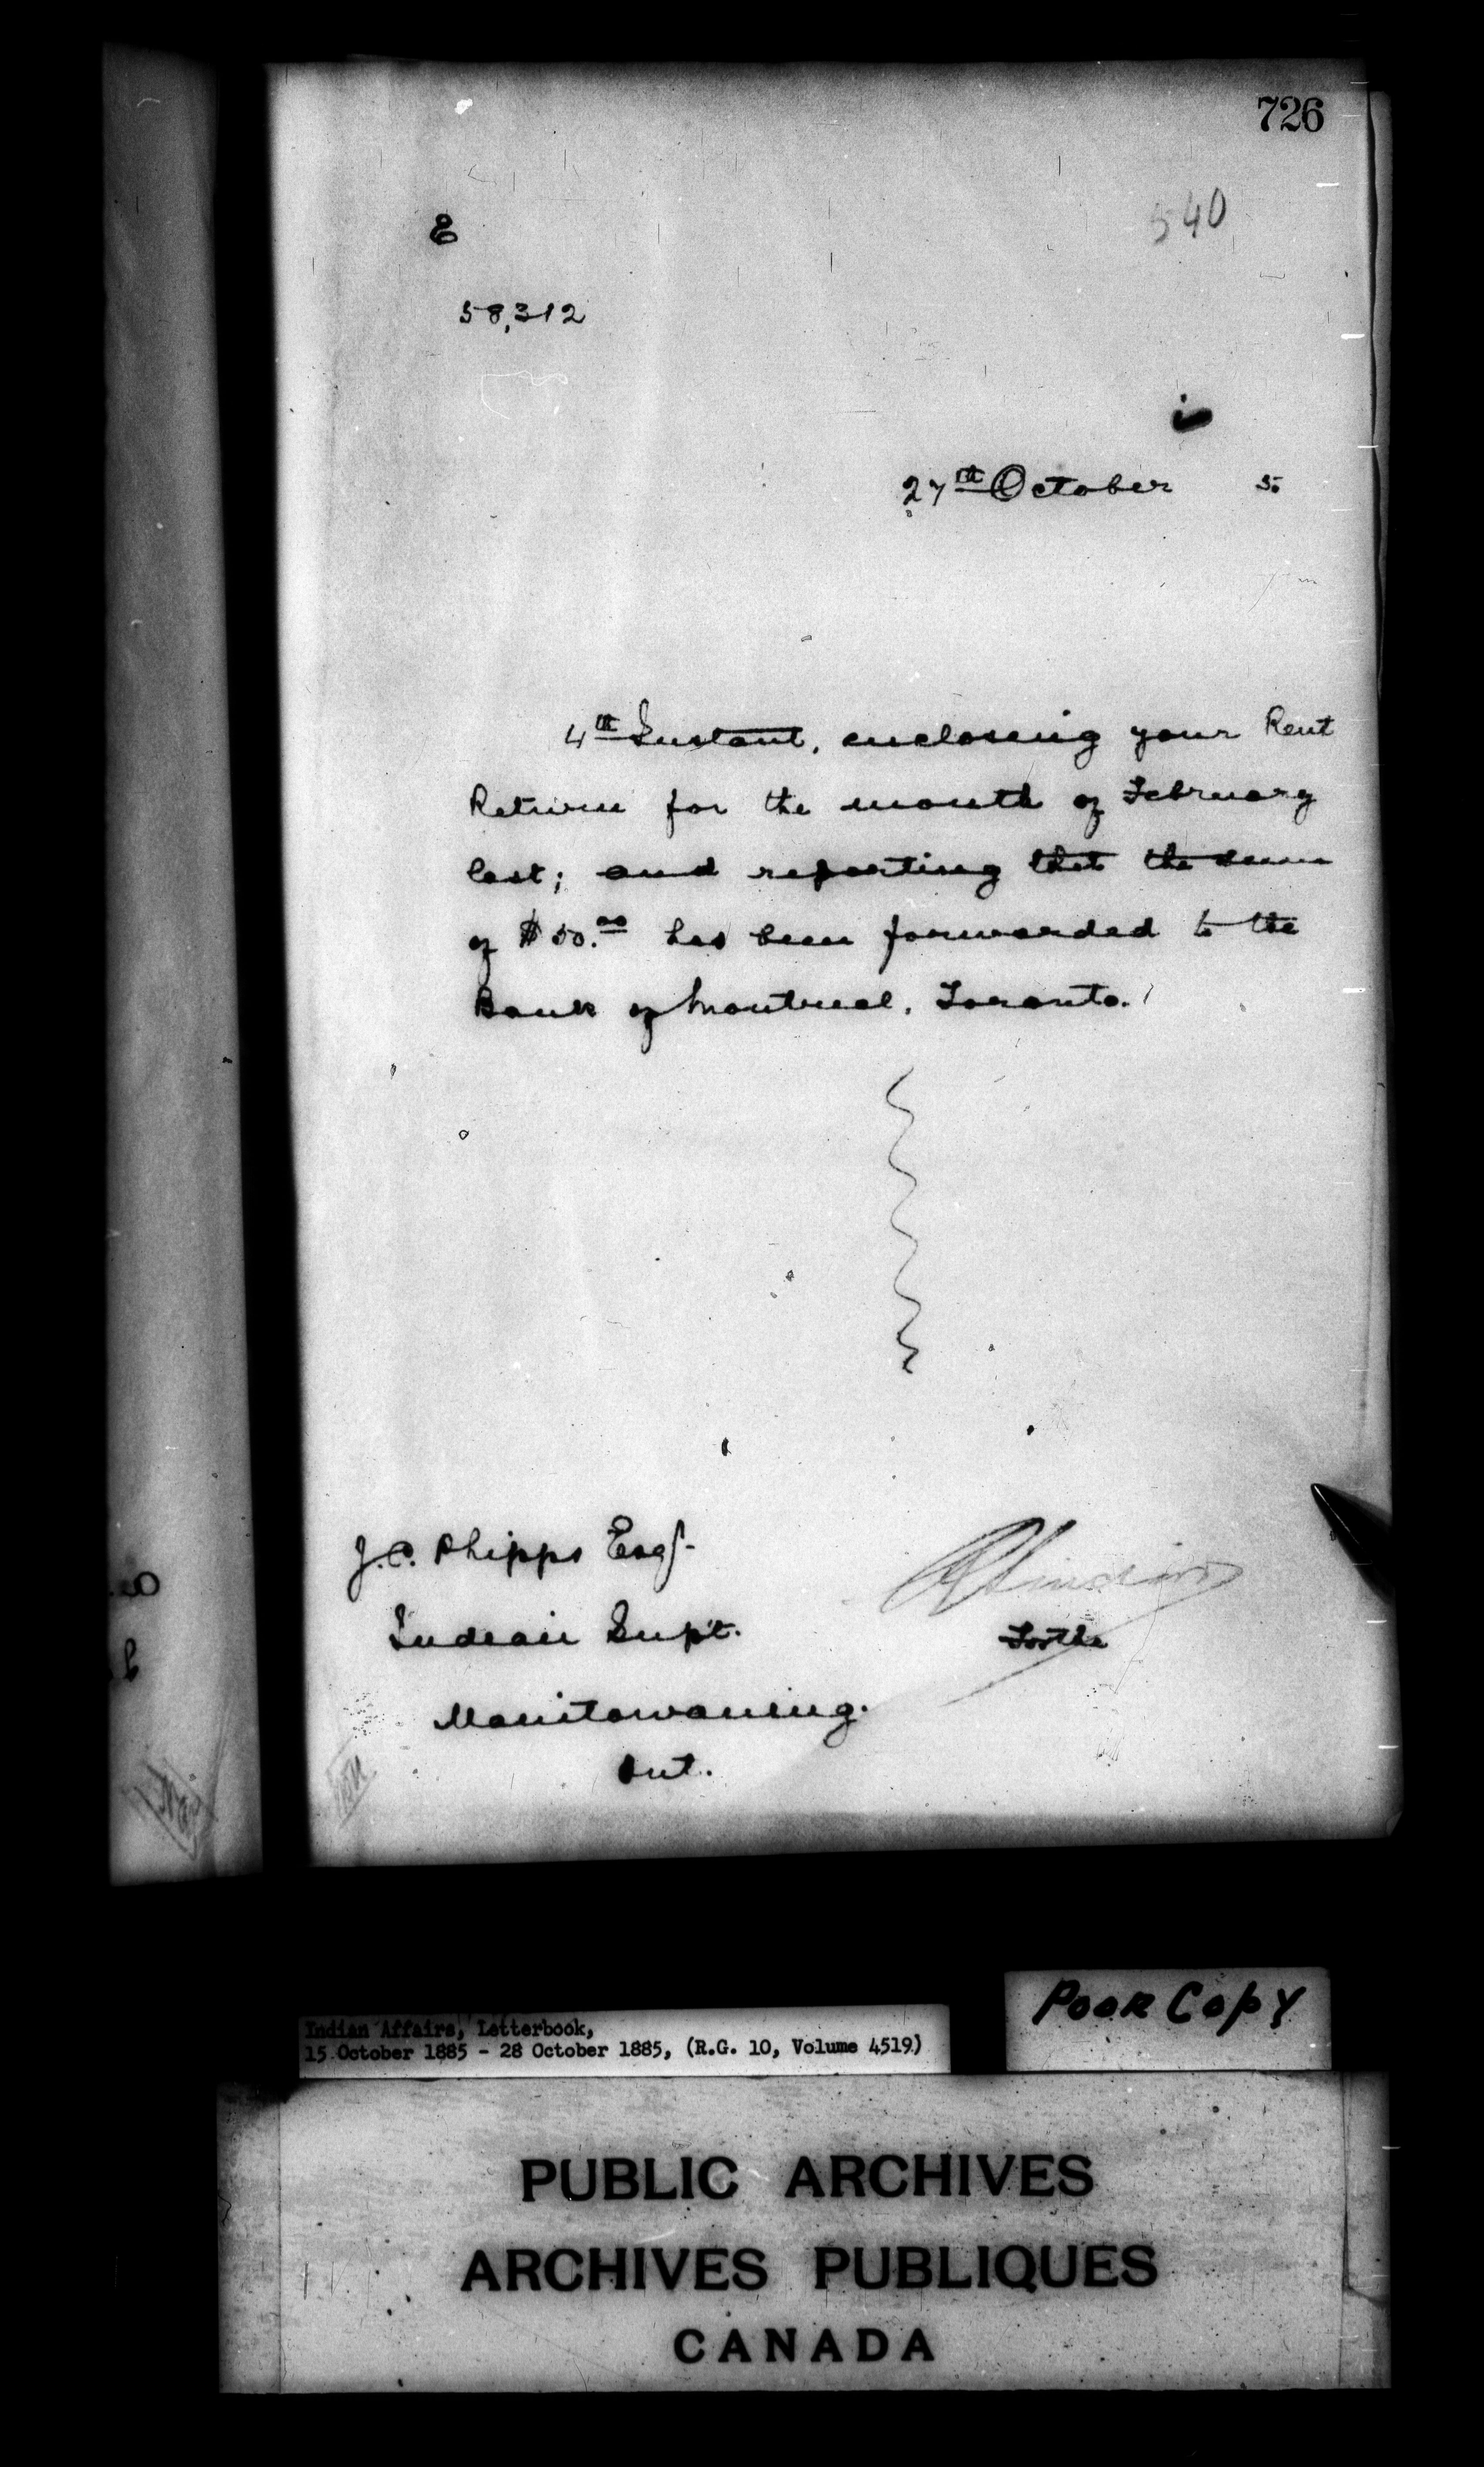 726
540
E
58,312
27th October 5.
4th Instant, enclosing your Rent
Return for the month of February
last; and reporting that the sum
of $50.00 has been forwarded to the
Bank of Montreal, Toronto.
J.C. Phipps Esqr.
Indian Supt.
For the
Manitowaning.
Ont.
Poor Copy
Indian Affairs, Letterbook,
15 October 1885 - 28 October 1885, (R.G. 10, Volume 4519)
PUBLIC ARCHIVES
ARCHIVES PUBLIQUES
CANADA